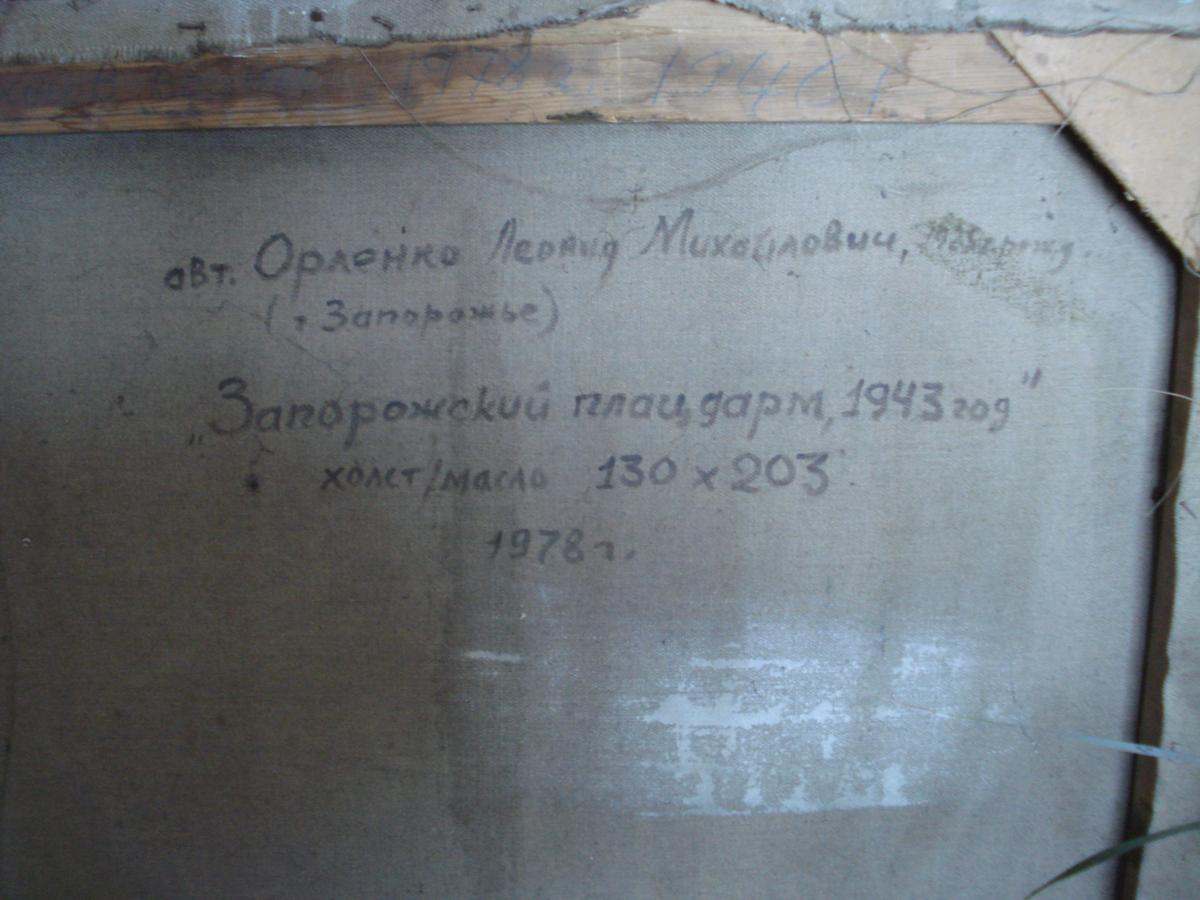 1978 г. 1946 г
авт. Орленко Леонид Михайлович,
(г Запорожье)
„Запорожский плацдарм, 1943 год"
холст/масло 130 x 203
1978 г.